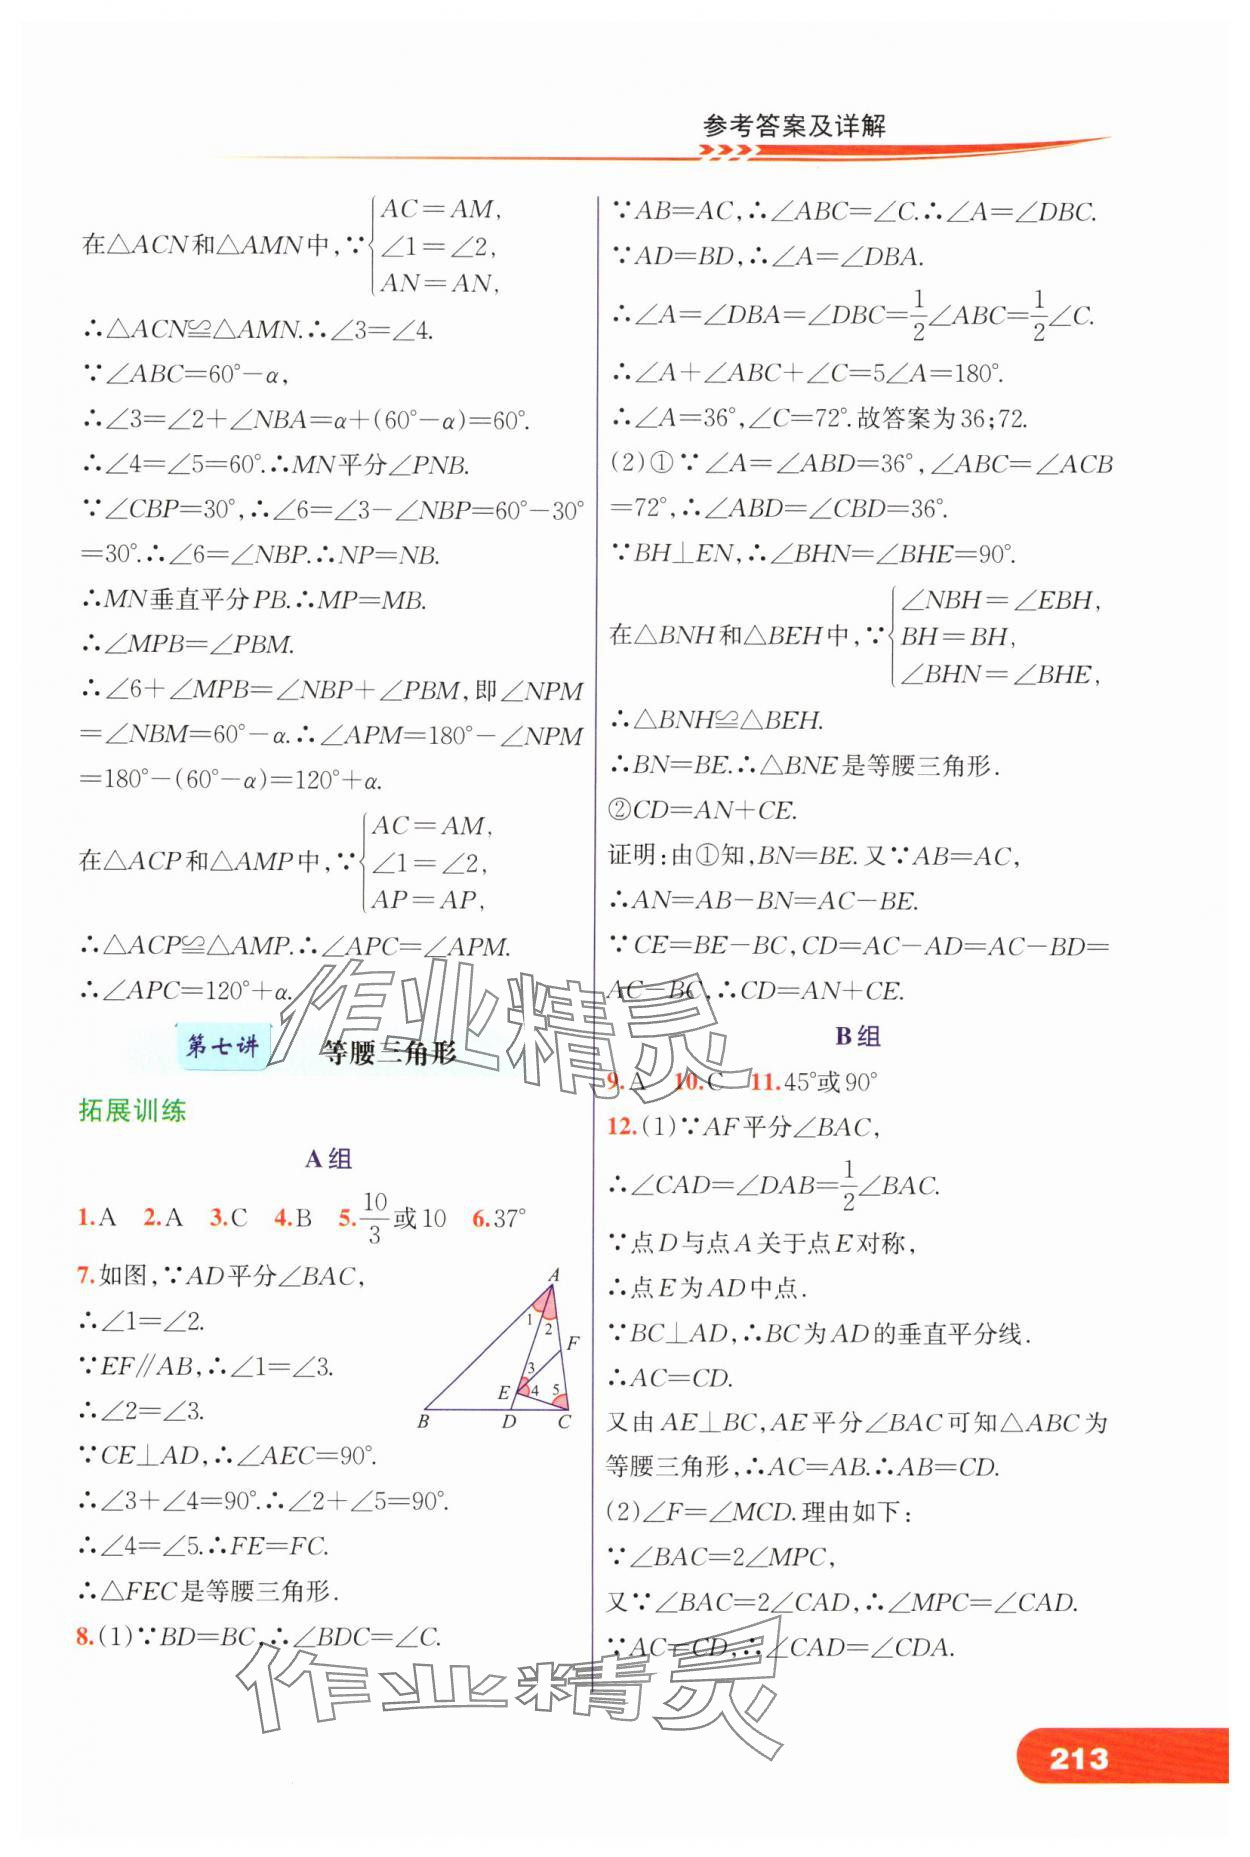 参考答案及详解
在△ACN和△AMN中,∵{AC=AM,
∠1=∠2,
AN=AN,
∴△ACN≌△AMN.∴∠3=∠4.
∵∠ABC=60°-α,
∴∠3=∠2+∠NBA=α+(60°-α)=60°.
∴∠4=∠5=60°.∴MN平分∠PNB.
∵∠CBP=30°,∴∠6=∠3-∠NBP=60°-30°
=30°.∴∠6=∠NBP.∴NP=NB.
∴MN垂直平分PB.∴MP=MB.
∴∠MPB=∠PBM.
∴∠6+∠MPB=∠NBP+∠PBM,即∠NPM
=∠NBM=60°-α.∴∠APM=180°-∠NPM
=180°-(60°-α)=120°+α.
在△ACP和△AMP中,∵{AC=AM,
∠1=∠2,
AP=AP,
∴△ACP≌△AMP.∴∠APC=∠APM.
∴∠APC=120°+α.
第七讲 等腰三角形
拓展训练
A组
1.A 2.A 3.C 4.B 5.10/3或10 6.37°
7.如图,∵AD平分∠BAC,
∴∠1=∠2.
∵EF∥AB,∴∠1=∠3.
∴∠2=∠3.
∵CE⊥AD,∴∠AEC=90°.
∴∠3+∠4=90°.∴∠2+∠5=90°.
∴∠4=∠5.∴FE=FC.
∴△FEC是等腰三角形.
A
1
2
F
3
E
4
5
B
D
C
8.(1)∵BD=BC,∴∠BDC=∠C.
∵AB=AC,∴∠ABC=∠C.∴∠A=∠DBC.
∵AD=BD,∴∠A=∠DBA.
∴∠A=∠DBA=∠DBC=1/2∠ABC=1/2∠C.
∴∠A+∠ABC+∠C=5∠A=180°.
∴∠A=36°,∠C=72°.故答案为36;72.
(2)①∵∠A=∠ABD=36°,∠ABC=∠ACB
=72°,∴∠ABD=∠CBD=36°.
∵BH⊥EN,∴∠BHN=∠BHE=90°.
在△BNH和△BEH中,∵{∠NBH=∠EBH,
BH=BH,
∠BHN=∠BHE,
∴△BNH≌△BEH.
∴BN=BE.∴△BNE是等腰三角形.
②CD=AN+CE.
证明:由①知,BN=BE.又∵AB=AC,
∴AN=AB-BN=AC-BE.
∵CE=BE-BC,CD=AC-AD=AC-BD=
AC-BC,∴CD=AN+CE.
B组
9.A 10.C 11.45°或90°
12.(1)∵AF平分∠BAC,
∴∠CAD=∠DAB=1/2∠BAC.
∵点D与点A关于点E对称,
∴点E为AD中点.
∵BC⊥AD,∴BC为AD的垂直平分线.
∴AC=CD.
又由AE⊥BC,AE平分∠BAC可知△ABC为
等腰三角形,∴AC=AB.∴AB=CD.
(2)∠F=∠MCD.理由如下:
∵∠BAC=2∠MPC,
又∵∠BAC=2∠CAD,∴∠MPC=∠CAD.
∵AC=CD,∴∠CAD=∠CDA.
作业精灵
作业精灵
213